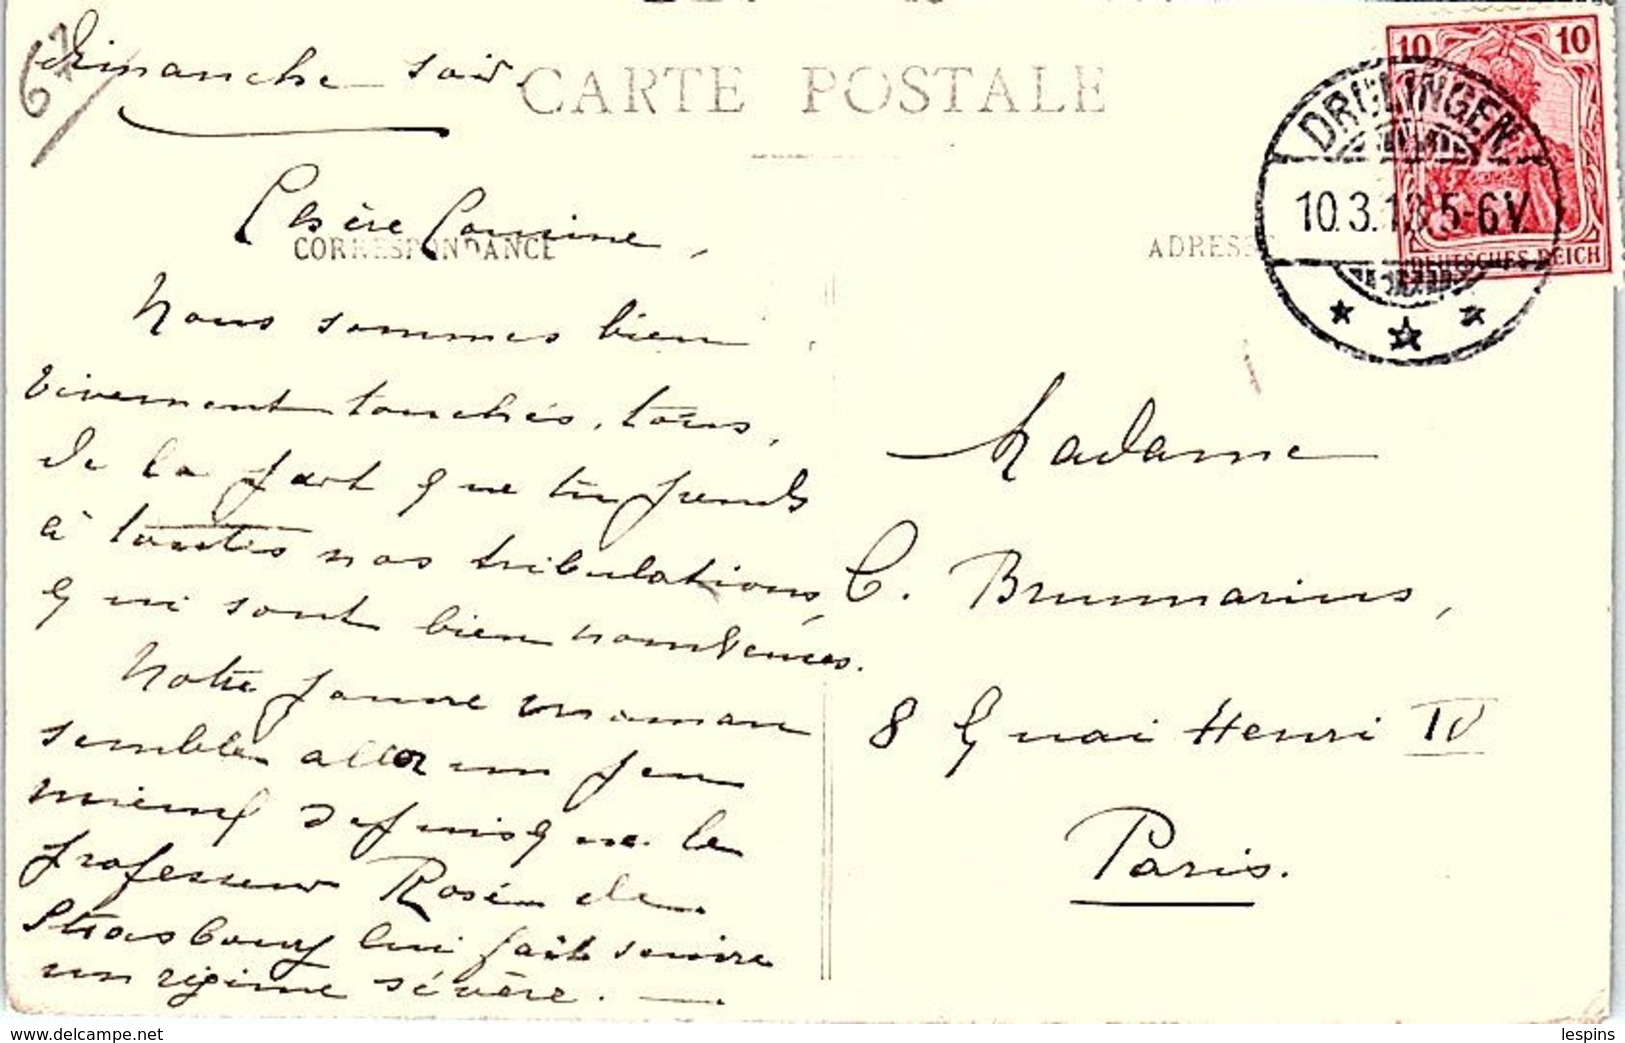 67
Dimanche soir.
CARTE POSTALE
Chère Cousine,
CORRESPONDANCE
Nous sommes bien
vivement touchés, tous,
de la part que tu prends
à toutes nos tribulations,
qui sont bien nombreuses.
Notre pauvre maman
semble aller un peu
mieux depuis que le
professeur Rosén de
Strasbourg lui fait suivre
un régime sévère. —
10 10
DEUTSCHES REICH
DRULINGEN
10.3.13. 5-6 V.
ADRESSE
Madame
C. Brummarius,
8 Quai Henri IV
Paris.
delcampe.net
lespins